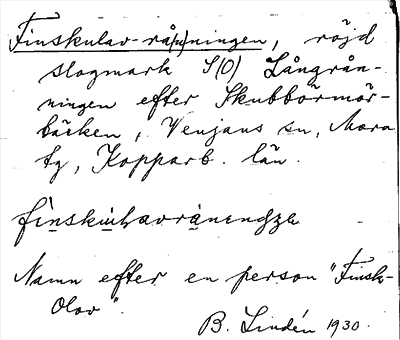 Finskulav-rå(n)ningen, röjd
slogmark S(O) Långrån-
ningen efter Skubbörmör-
bäcken, Venjans sn, Mora
tg, Kopparb. län.
fìnskùlavrànendze
Namn efter en person "Finsk-
Olov".
B. Lindén 1930.